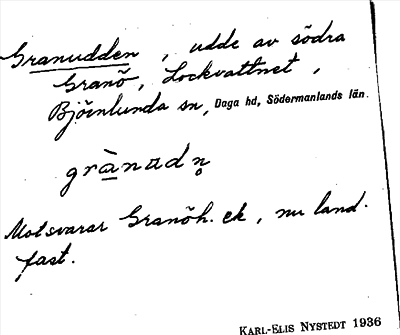 Granudden, udde av södra
Granö, Lockvattnet,
Björnlunda sn, Daga hd, Södermanlands län.
grànudn̥
Motsvarar Granöh. ek, nu land-
fast.
KARL-ELIS NYSTEDT 1936